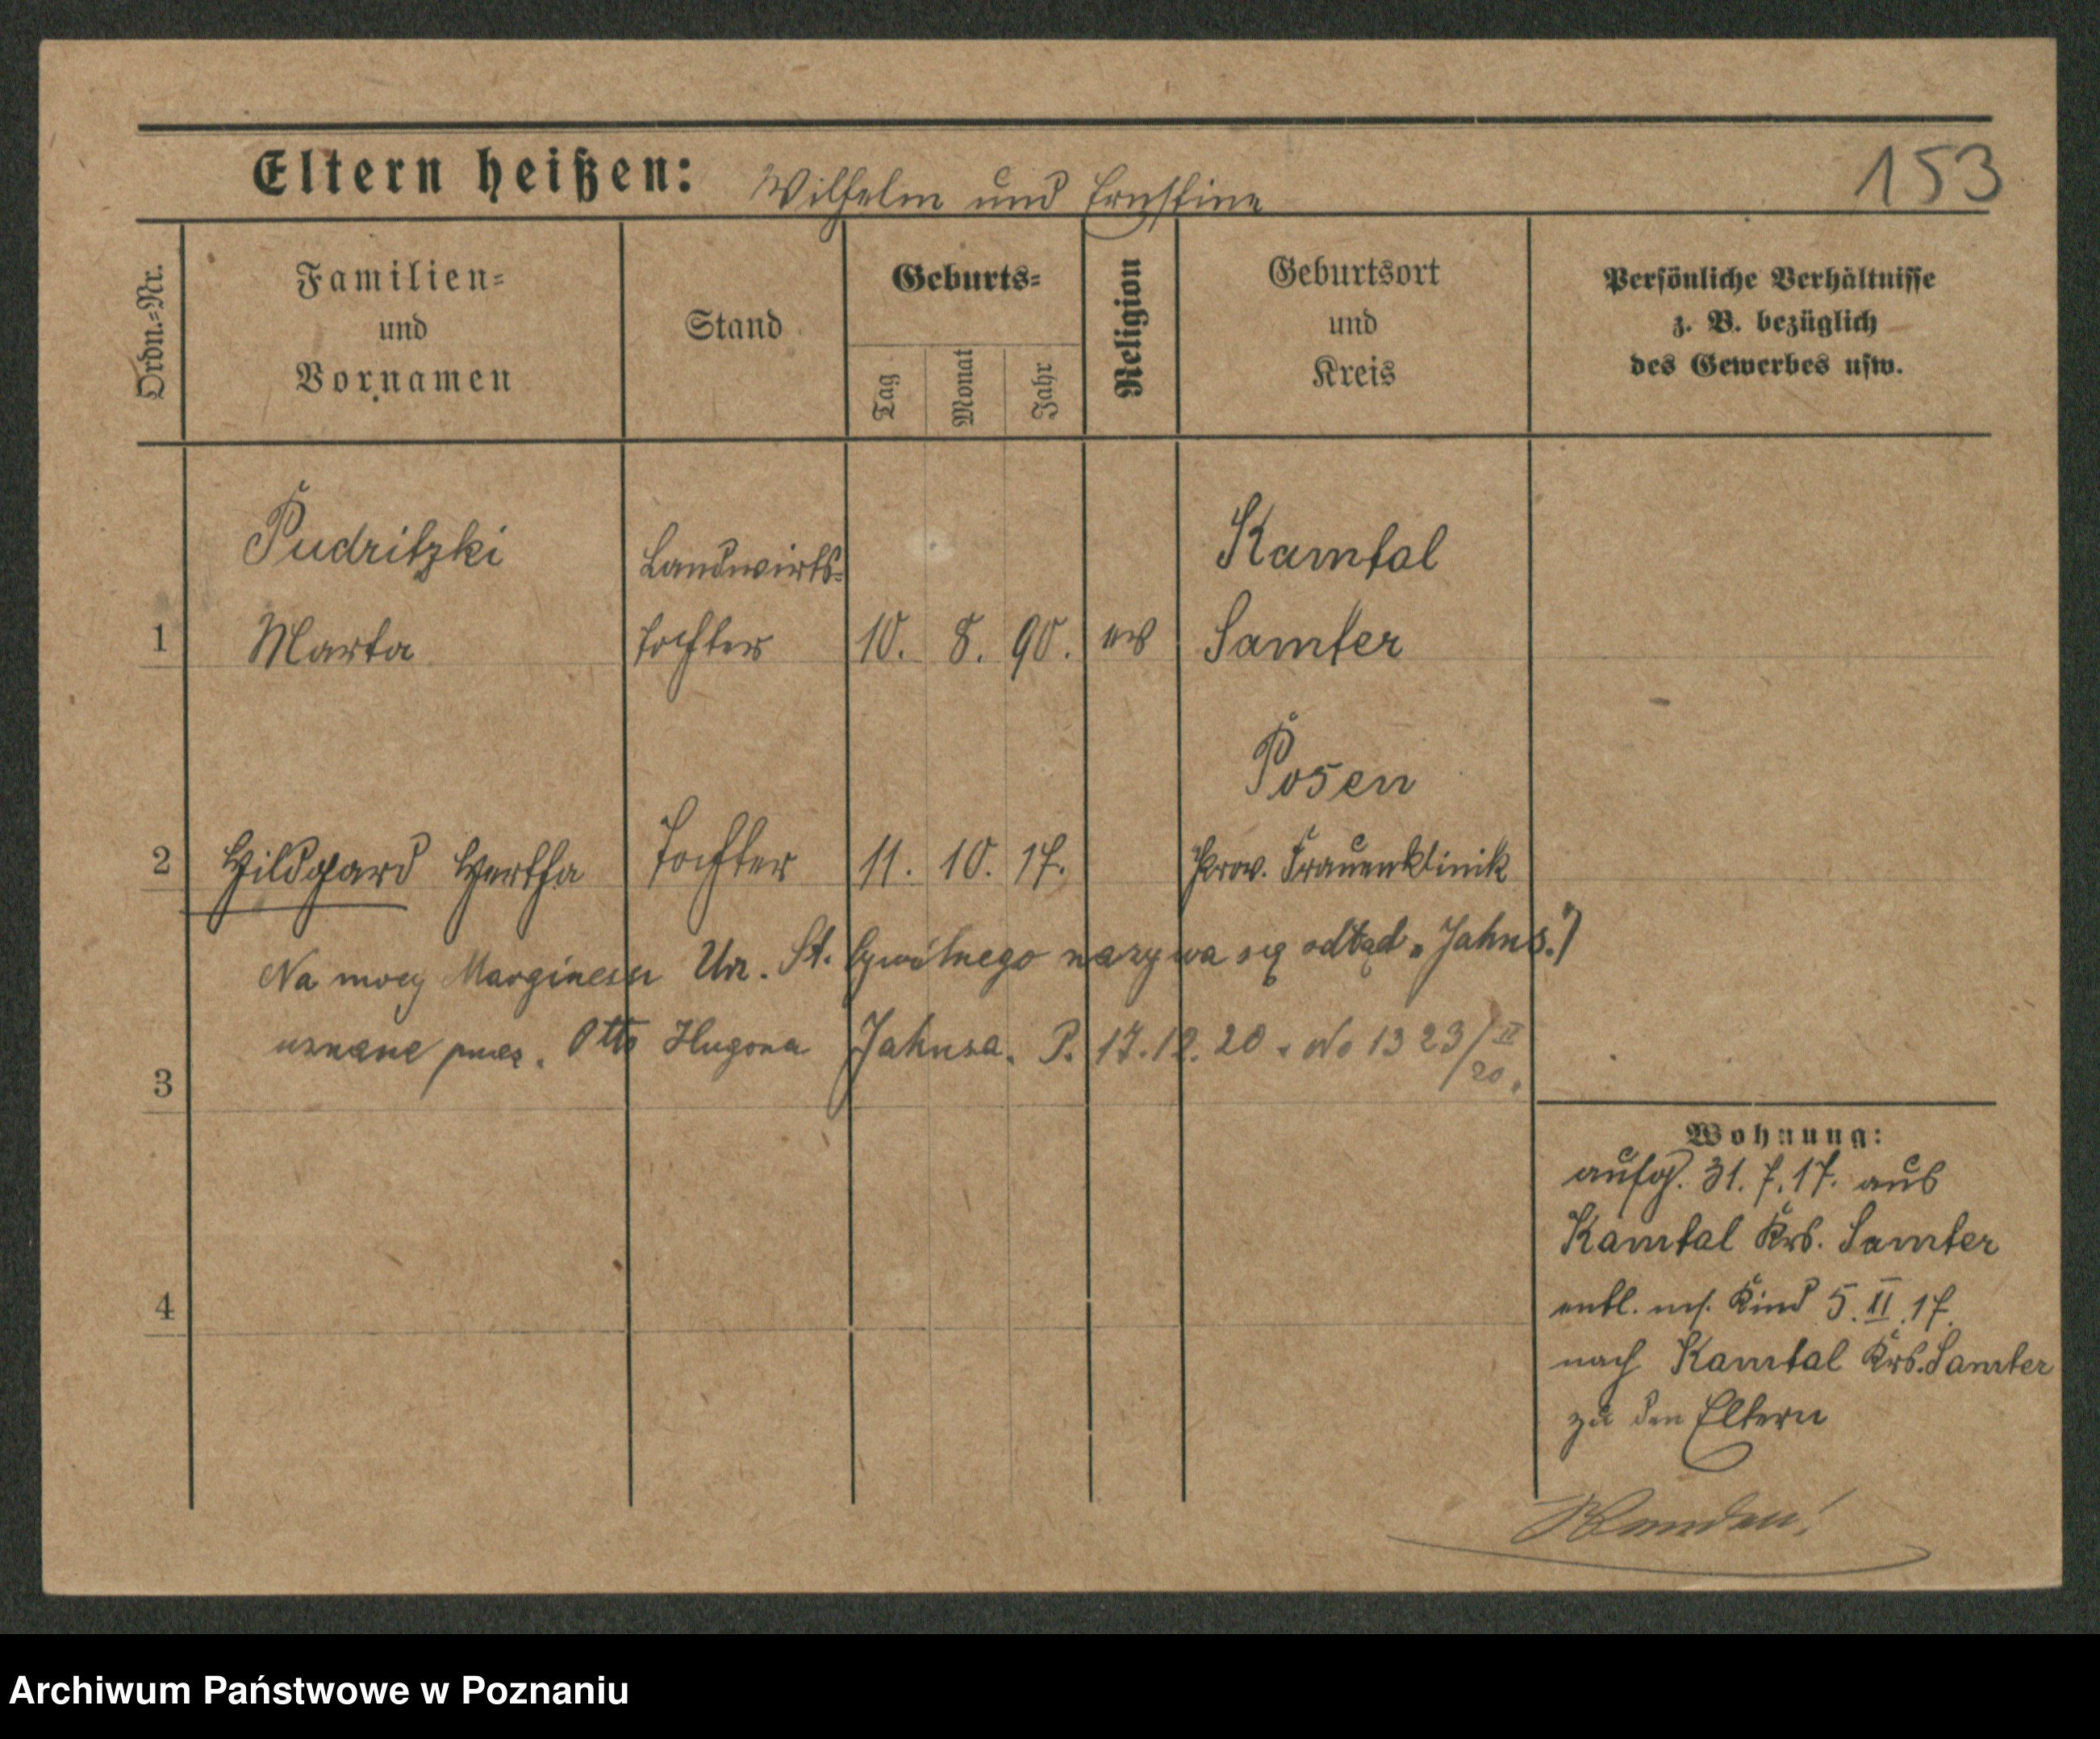 Eltern heißen: Wilhelm und Ernstine 153
Ordn.-Nr.
Familien-
und
Vornamen
Stand
Geburts-
Tag
Monat
Jahr
Religion
Geburtsort
und
Kreis
Persönliche Verhältnisse
z. B. bezüglich
des Gewerbes usw.
Pudritzki Landwirts- Kamtal
1 Marta tochter 10. 8. 90. ev Samter
Posen
2 Hildgard Hertha Tochter 11. 10. 17. Prov. Frauenklinik
Na mocy Marginesu Urz. St. Cywilnego nazywa się odtąd „Jahns.")
uznane przez. Otto Hugona Jahnsa. P. 17.12.20. No 1323/II
20.
3
4
Wohnung:
aufg. 31.7.17. aus
Kamtal Krs. Samter
entl. m. Kind 5.II.17.
nach Kamtal Krs. Samter
zu den Eltern
Archiwum Państwowe w Poznaniu